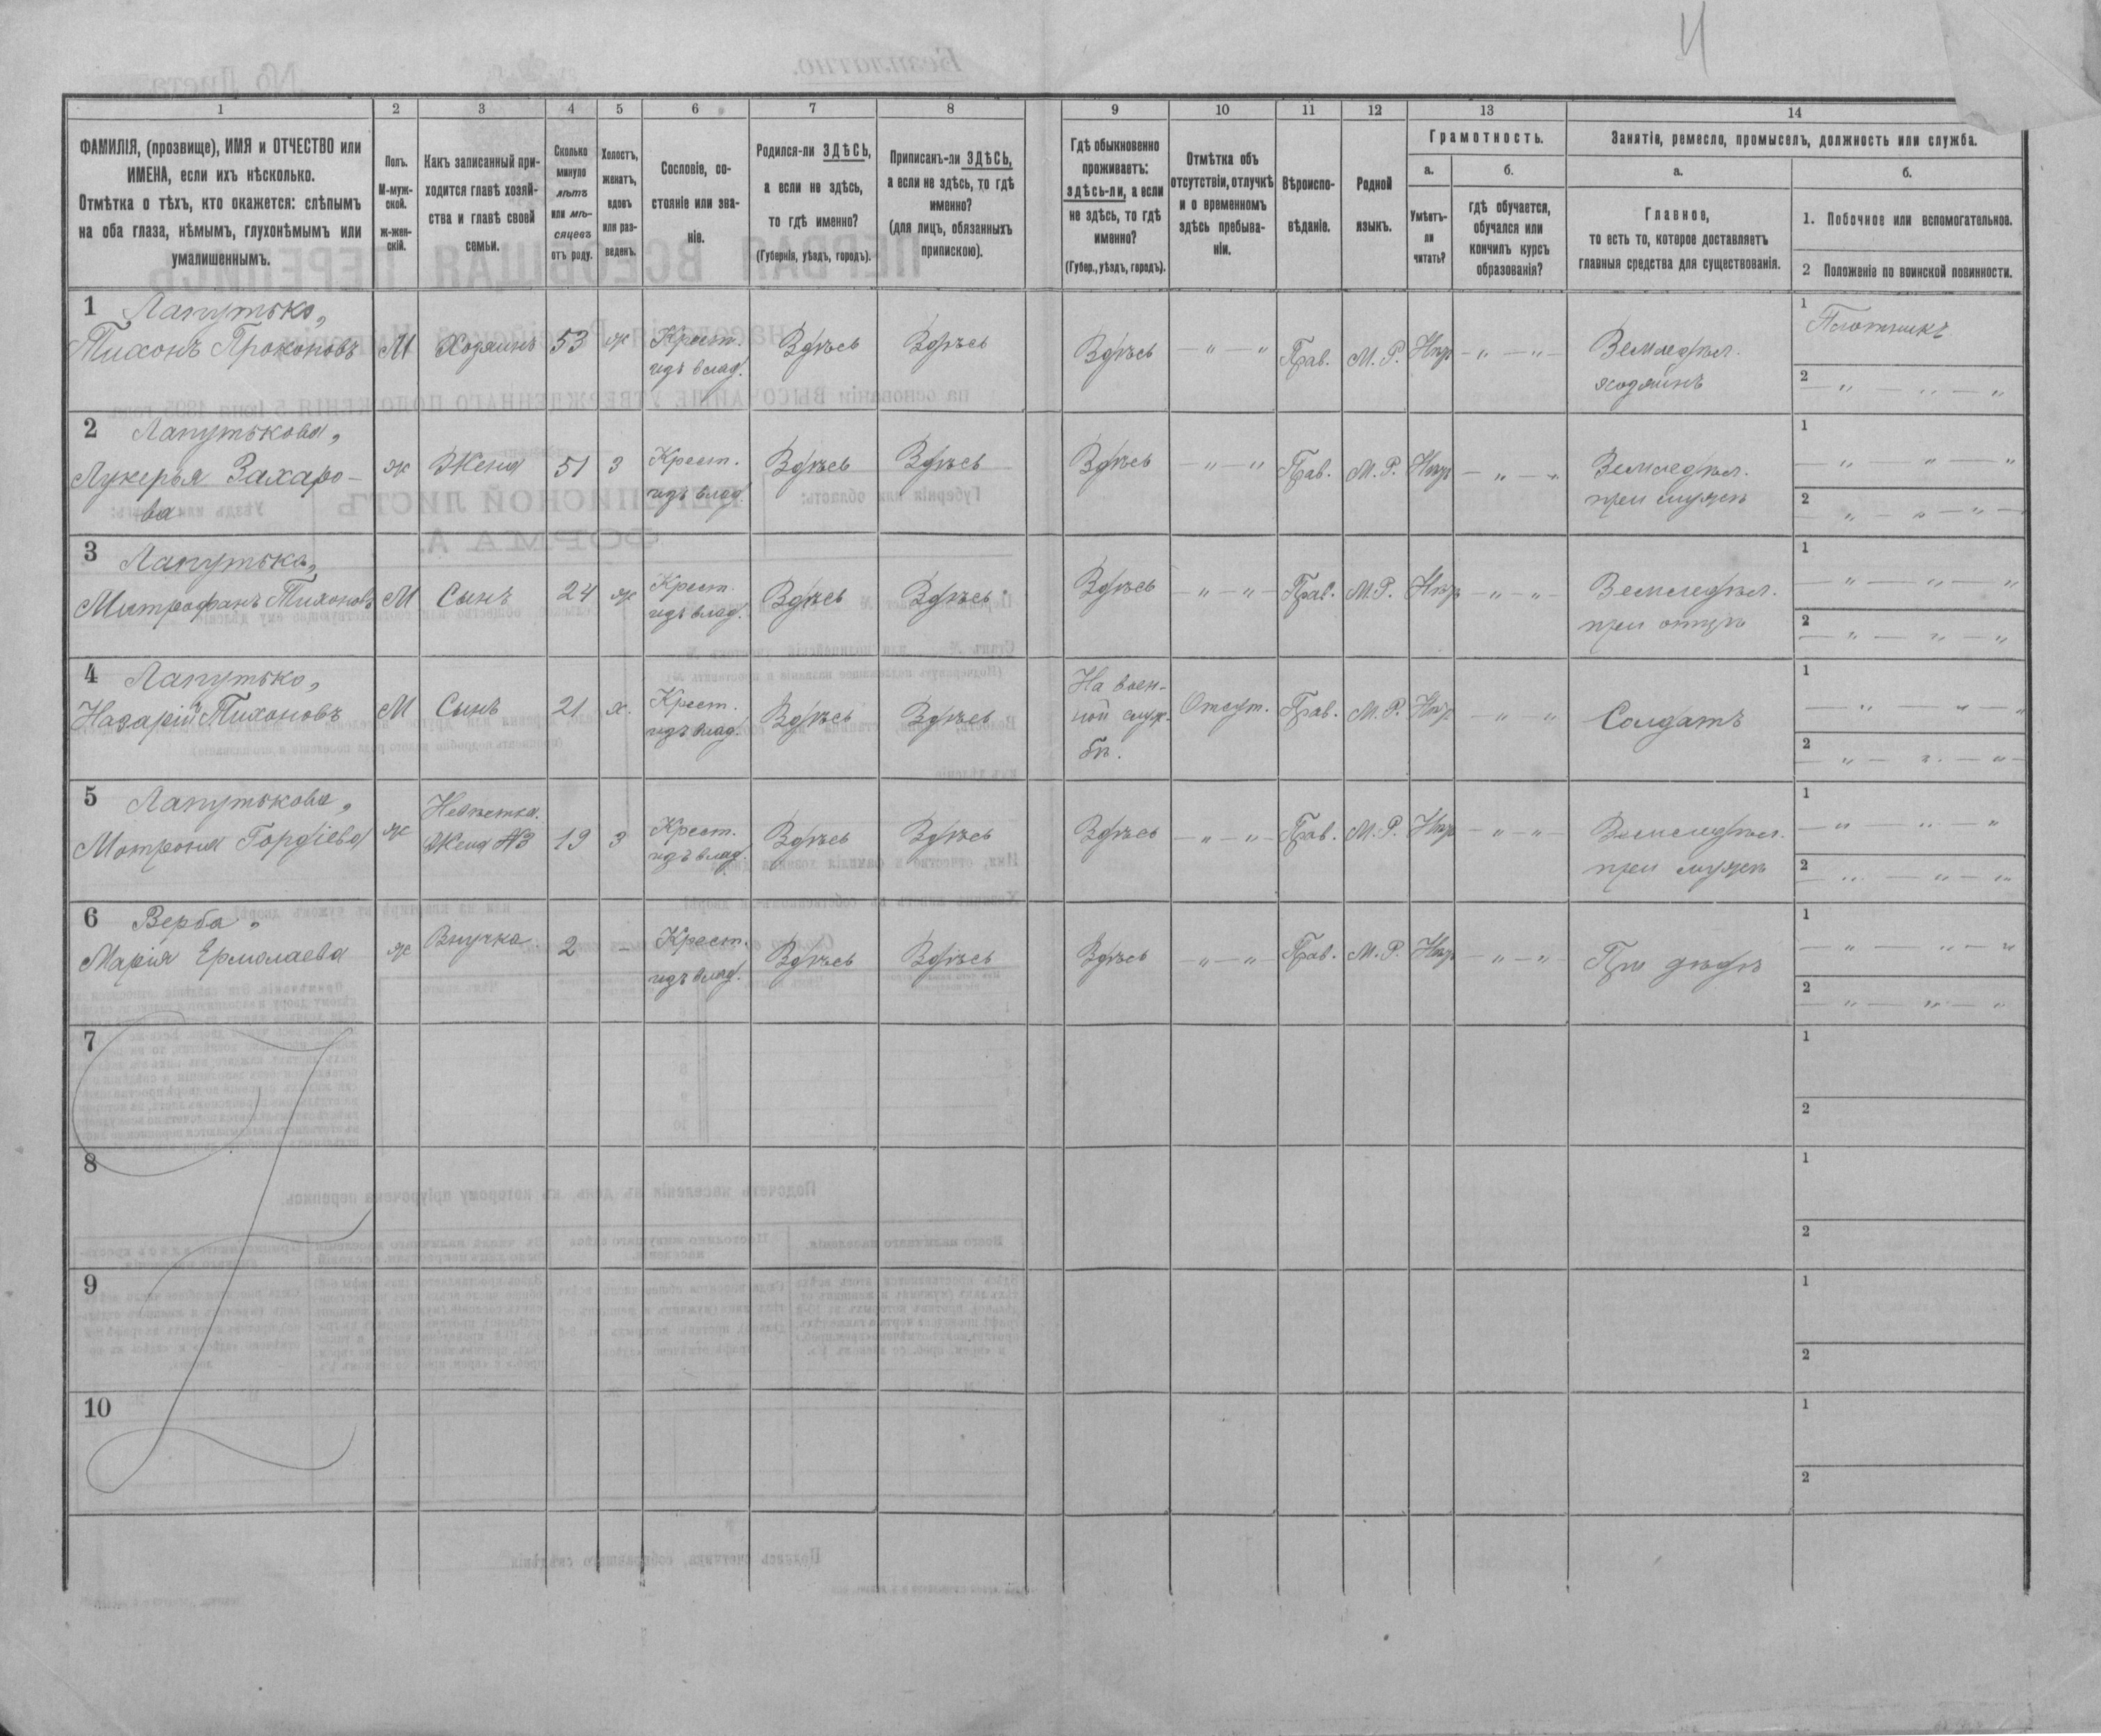 Ч
1 2 3 4 5 6 7 8 9 10 11 12 13 14
ФАМИЛІЯ, (прозвище), ИМЯ и ОТЧЕСТВО или
ИМЕНА, если ихъ нѣсколько.
Отмѣтка о тѣхъ, кто окажется: слѣпымъ
на оба глаза, нѣмымъ, глухонѣмымъ или
умалишеннымъ.
Полъ.
М-муж-
ской.
ж-жен-
скій.
Какъ записанный при-
ходится главѣ хозяй-
ства и главѣ своей
семьи.
Сколько
минуло
лѣтъ
или мѣ-
сяцевъ
отъ роду.
Холостъ,
женатъ,
вдовъ
или раз-
веденъ.
Сословіе, со-
стояніе или зва-
ніе.
Родился-ли ЗДѢСЬ,
а если не здѣсь,
то гдѣ именно?
(Губернія, уѣздъ, городъ).
Приписанъ-ли ЗДѢСЬ,
а если не здѣсь, то гдѣ
именно?
(для лицъ, обязанныхъ
припискою).
Гдѣ обыкновенно
проживаетъ:
здѣсь-ли, а если
не здѣсь, то гдѣ
именно?
(Губер., уѣздъ, городъ).
Отмѣтка объ
отсутствіи, отлучкѣ
и о временномъ
здѣсь пребыва-
ніи.
Вѣроиспо-
вѣданіе.
Родной
языкъ.
Грамотность.
а.
Умѣетъ-
ли
читать?
б.
гдѣ обучается,
обучался или
кончилъ курсъ
образованія?
Занятіе, ремесло, промыселъ, должность или служба.
а.
Главное,
то есть то, которое доставляетъ
главныя средства для существованія.
б.
1. Побочное или вспомогательное.
2 Положеніе по воинской повинности.
1 Лапутько,
Тихонъ Прокоповъ М Хозяинъ 53 ж Крест. Здѣсь Здѣсь Здѣсь — „ — „ Прав. М. Р. Нѣт — „ — „ — Земледѣл. 1 Плотникъ
влад. хозяинъ 2 — „ — „ — „
2 Лапутькова,
Лукерья Захаро- ж Жена 51 З Крест. Здѣсь Здѣсь Здѣсь — „ — „ Прав. М. Р. Нѣт — „ — „ Земледѣл. 1 — „ — „ — „
ва влад. при мужѣ 2 — „ — „ — „ —
3 Лапутько,
Митрофанъ Тихоновъ М Сынъ 24 ж Крест. Здѣсь Здѣсь Здѣсь — „ — „ — Прав. М. Р. Нѣт — „ — „ — Земледѣл. 1 — „ — „ — „
влад. при отцѣ 2 — „ — „ — „
4 Лапутько,
Назарій Тихоновъ М Сынъ 21 х. Крест. Здѣсь Здѣсь На воен- Отсут. Прав. М. Р. Нѣт — „ „ Солдатъ 1 — „ — „ — „
влад. ной служ- 2 — „ — „ — „ —
бѣ.
5 Лапутькова, Невѣстка.
Мотрона Гордіева ж Жена №3 19 З Крест. Здѣсь Здѣсь Здѣсь — „ — „ — Прав. М. Р. Нѣт — „ — „ Земледѣл. 1 — „ — „ — „
влад. при мужѣ 2 — „ — „ — „
6 Верба,
Марія Ермолаева ж Внучка 2 — Крест. Здѣсь Здѣсь Здѣсь — „ — „ Прав. М. Р. Нѣт — „ — „ При дѣдѣ 1 — „ — „ — „
влад. 2 — „ — „ — „
7 1
2
8 1
2
9 1
2
10 1
2